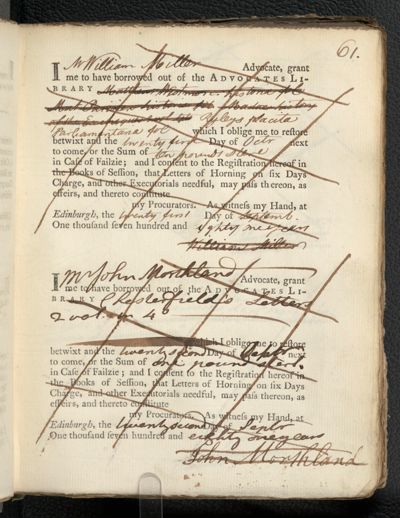 61.
I Mr William Miller Advocate, grant
me to have borrowed out of the ADVOCATES LI-
BRARY Matthew
Ryleys placita
Parliamentaria fol which I oblige me to restore
betwixt and the twenty first Day of Octr next
to come, or the Sum of ten pounds Sterl
in Case of Failzie; and I consent to the Registration hereof in
the Books of Session, that Letters of Horning on six Days
Charge, and other Executorials needful, may pass thereon, as
effeirs, and thereto constitute
my Procurators. As witness my Hand, at
Edinburgh, the twenty first Day of Septemr.
One thousand seven hundred and eighty nine years
William Miller
I Mr John Morthland Advocate, grant
me to have borrowed out of the ADVOCATES LI-
BRARY Chesterfield's Letters
2 vols in 4o
which I oblige me to restore
betwixt and the twenty second Day of Octr next
to come, or the Sum of one pound Ster.
in Case of Failzie; and I consent to the Registration hereof in
the Books of Session, that Letters of Horning on six Days
Charge, and other Executorials needful, may pass thereon, as
effeirs, and thereto constitute
my Procurators. As witness my Hand, at
Edinburgh, the twenty second Day of Septr
One thousand seven hundred and eighty nine years
John Morthland